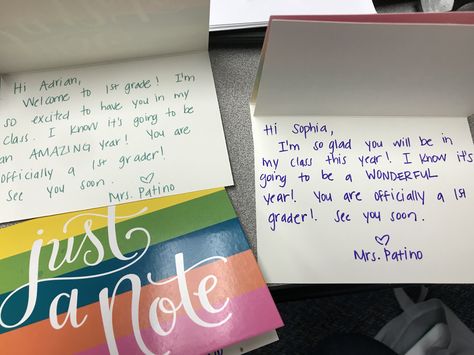 Hi Adrian,
Welcome to 1st grade! I'm
so excited to have you in my
class. I know it's going to be
an AMAZING year! You are
officially a 1st grader!
See you soon.
Mrs. Patino
Hi Sophia,
I'm so glad you will be in
my class this year! I know it's
going to be a WONDERFUL
year! You are officially a 1st
grader! See you soon.
Mrs. Patino
just
a Note